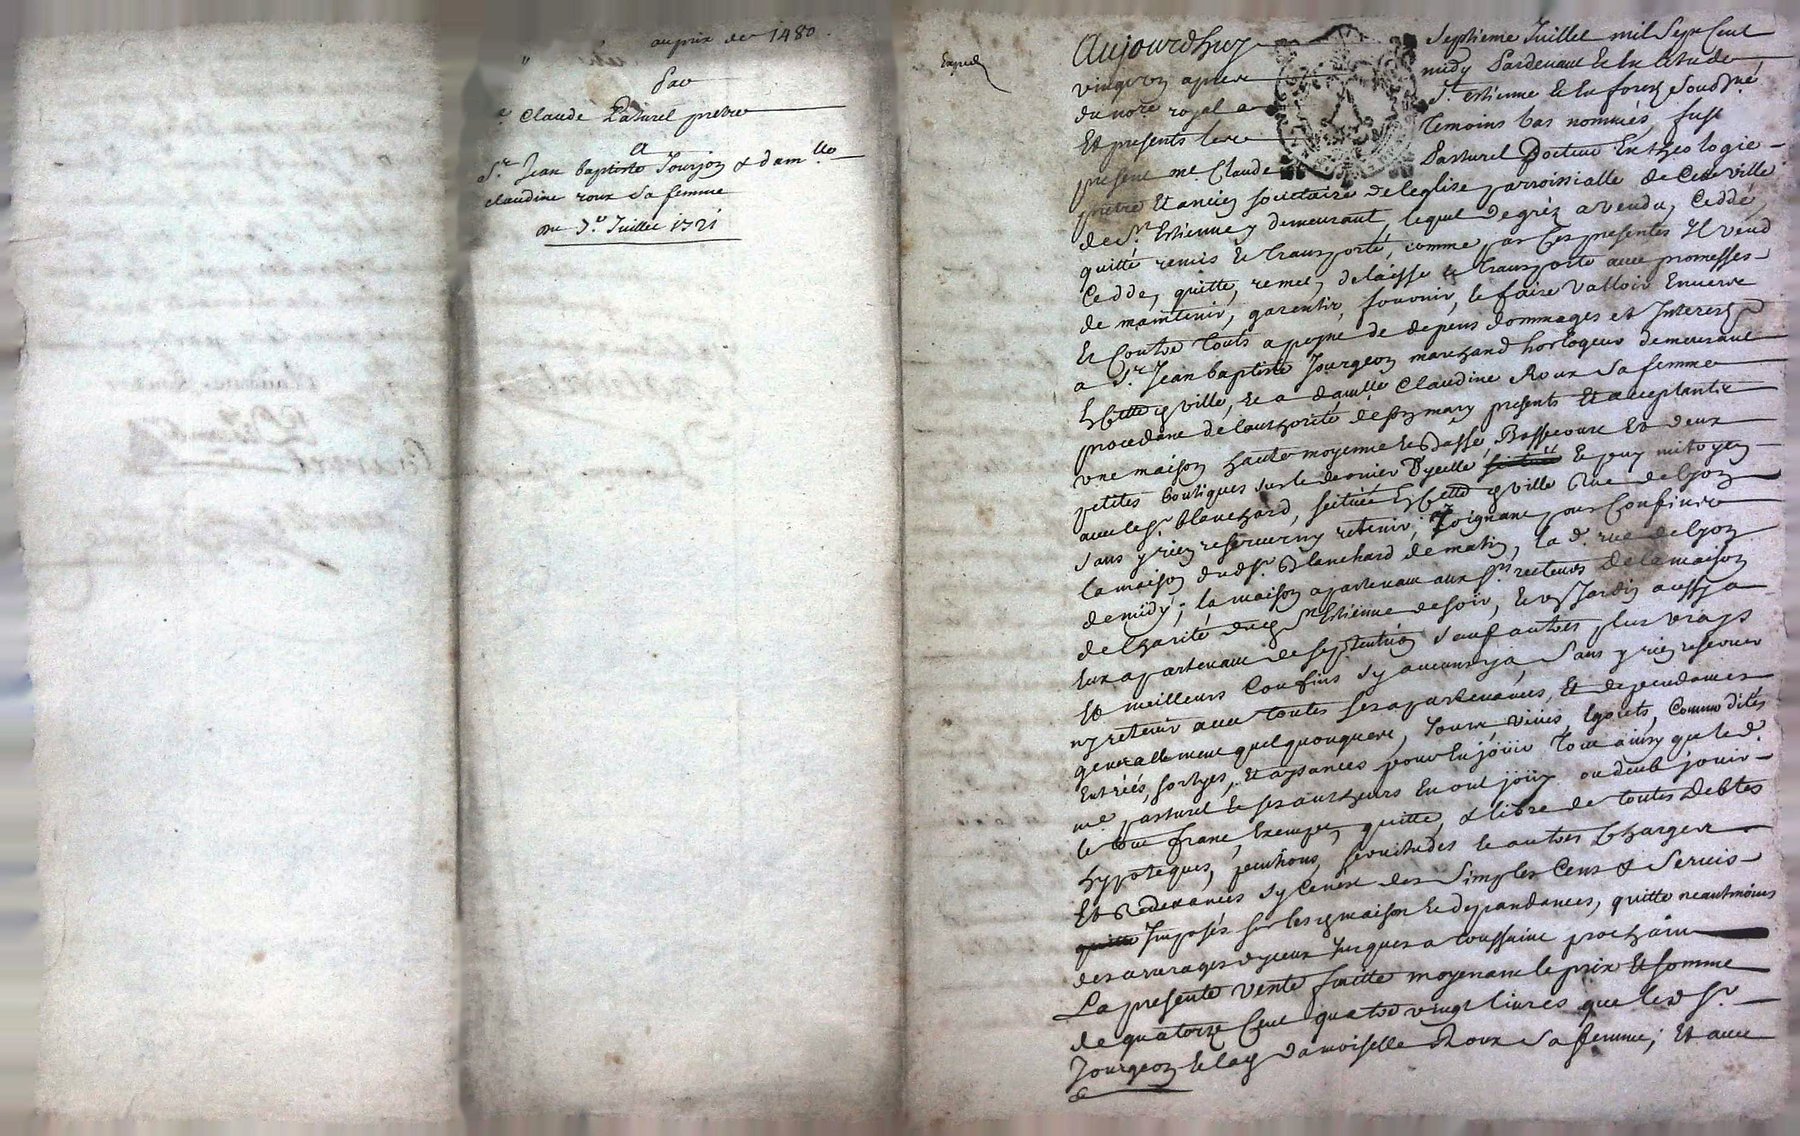 au prix de 1480.
Par
Claude Pasturel pretre
A
Sr. Jean baptiste Jourjon & damlle
claudine roux sa femme
Du 7e. Juillet 1721
Exped
Aujourdhuy septieme Juillet mil sept cent
vingt un apres midy Pardevant
du nore royal a St. estienne en forest soubzné
Et presents les temoins bas nommés, fust
present me. Claude Pasturel Docteur En theologie
pretre Et ancien societaire de leglise parroissialle de Cette ville
de St. Estienne y demeurant, lequel de gré a vendu, Ceddé,
quitté remis Et transporté, comme par Ces presentes Il vend
Cedde, quitte, remet, delaisse & transporte avec promesses
de maintenir, garentir, fournir, le faire valloir Envers
Et Contre touts a peyne de depens dommages et Interests
a Sr. Jean baptiste Jourgeon marchand horlogeur demeurant
En Cette ville, Et a damlle Claudine Roux sa femme
procedant de lauthorité de son mary presents Et acceptants
une maison haute moyenne Et Basse, Bassecourt Et deux
petites boutiques sur le dernier d'ycelle Et puy mitoyen
avec le sr. blanchard, scituée En Cette ville Rue de lyon
sans y rien reserver ny retenir; Joignant pour Confins
la maison dud. sr. Blanchard de matin, la d. rue de lyon
de midy; la maison apartenant aux srs. recteurs de la maison
de Charité de St. Estienne de soir, Et un Jardin aussy a
Eux apartenant de septentrion sauf autres plus vrays
Et meilleurs Confins sy aucuns y a, sans y rien reserver
ny retenir avec toutes ses apartenances, Et dependances
generallement quelquonques, Jours, vües, Egoits, Commodités
Entrées, sortyes, Et aysances pour En joüir tout ainsy que led.
me. pasturel Et ses autheurs En ont joüy ou deub joüir
le tout franc, Exempt, quitte, & libre de toutes debtes
hypoteques, pentions, servitudes Et autres Charges
Et Redevances sy Cenest des simples Cens & servis
Imposés sur les maison Et dependances, quitte neantmoins
des arrerages dyceux Jusques a toussaint prochain
La presente vente faitte moyenant le prix Et somme
de quatorze Cent quatre vingt livres que led. sr.
Jourgeon Et lad. damoiselle Roux sa femme; Et avec